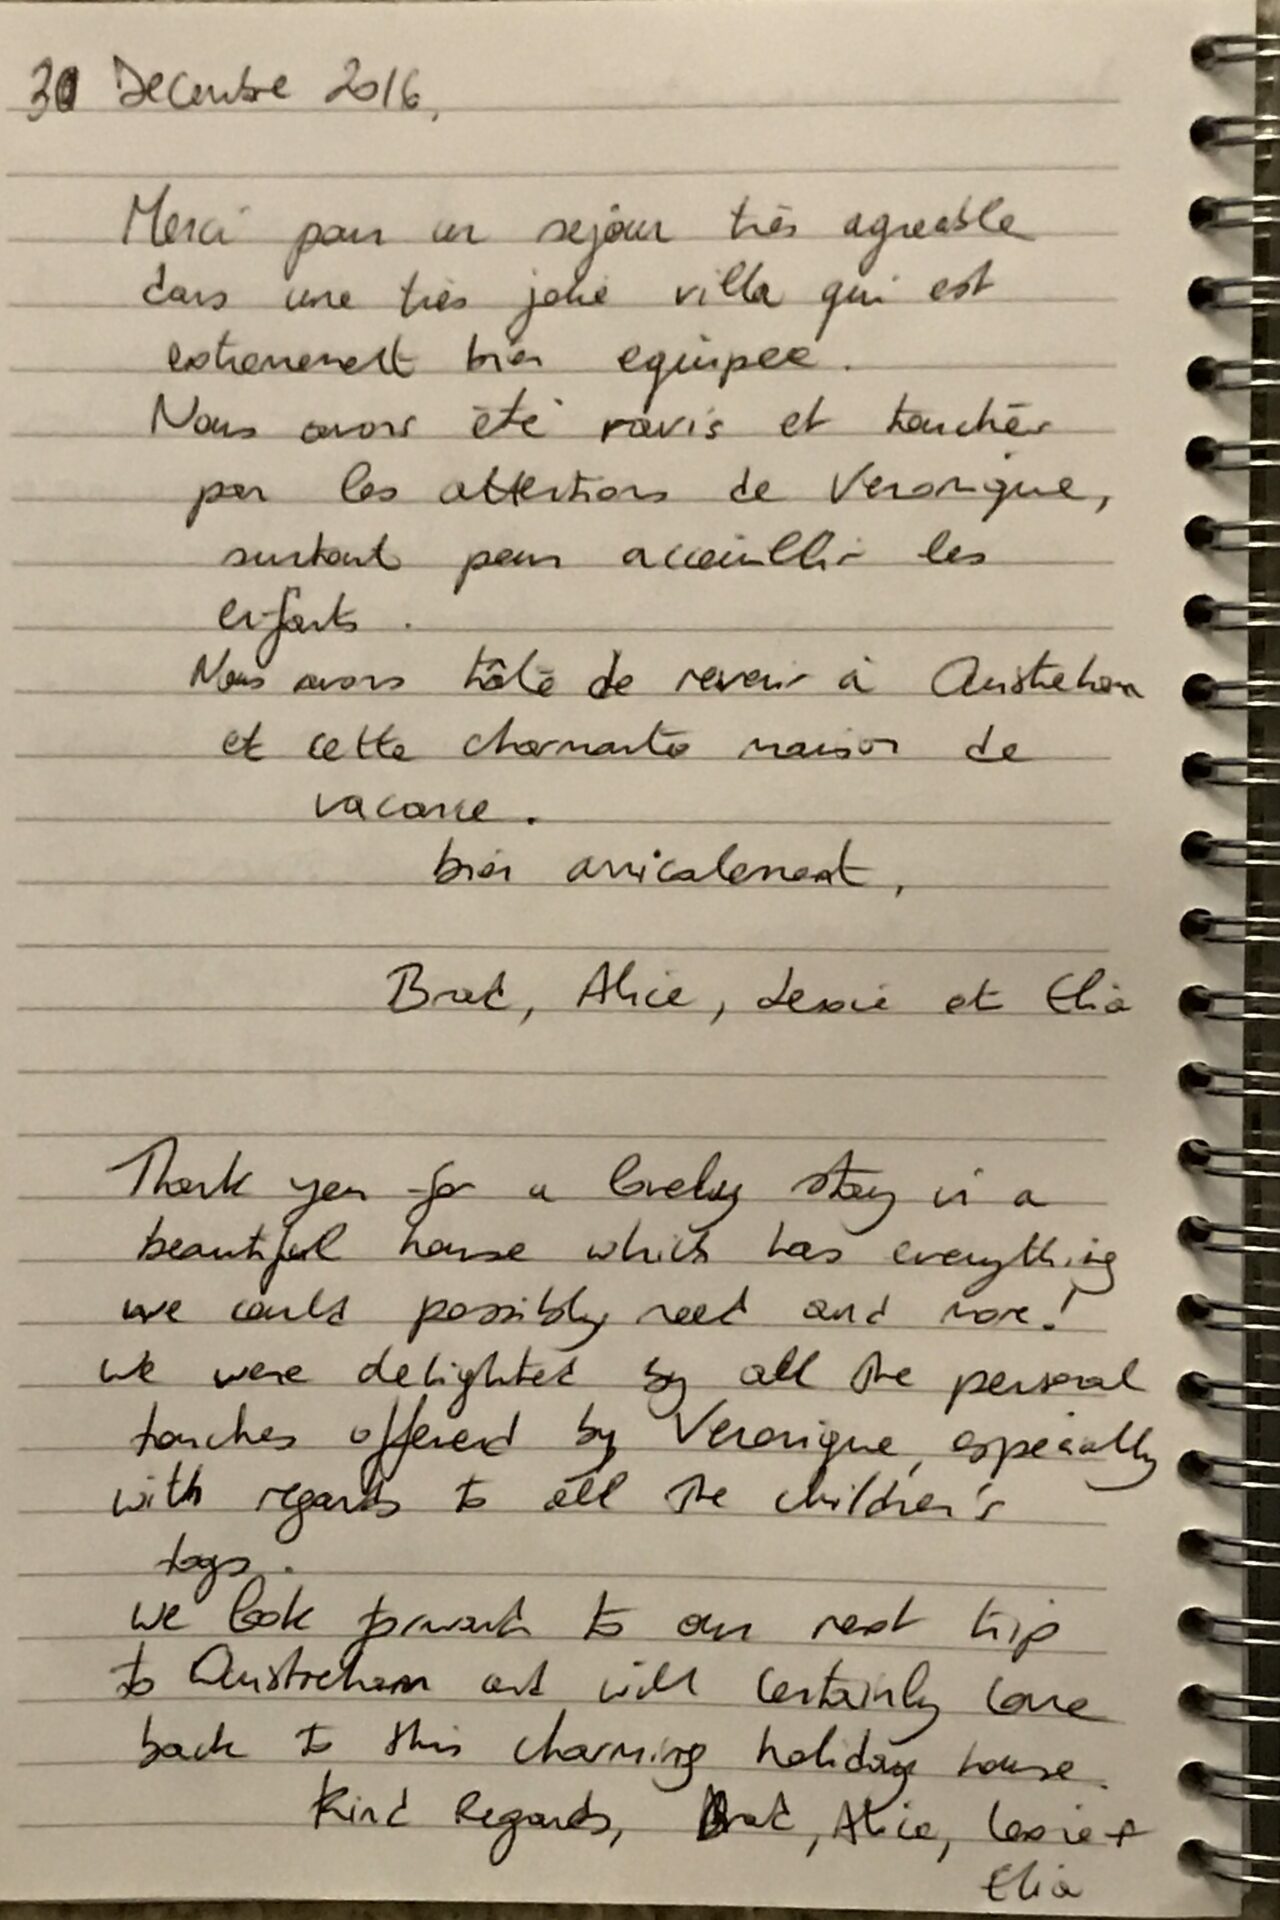 30 Decembre 2016,
Merci pour un sejour très agreable
dans une très jolie villa qui est
extremement bien equipee.
Nous avons été ravis et touchés
par les attentions de Veronique,
surtout pour accueillir les
enfants.
Nous avons hâte de revenir à Ouistreham
et cette charmante maison de
vacance.
bien amicalement,
Brad, Alice, Lexie et Elia
Thank you for a lovely stay in a
beautiful house which has everything
we could possibly need and more!
we were delighted by all the personal
touches offered by Veronique, especially
with regards to all the children's
toys.
we look forward to our next trip
to Ouistreham and will certainly come
back to this charming holiday house.
Kind Regards, Brad, Alice, Lexie +
Elia